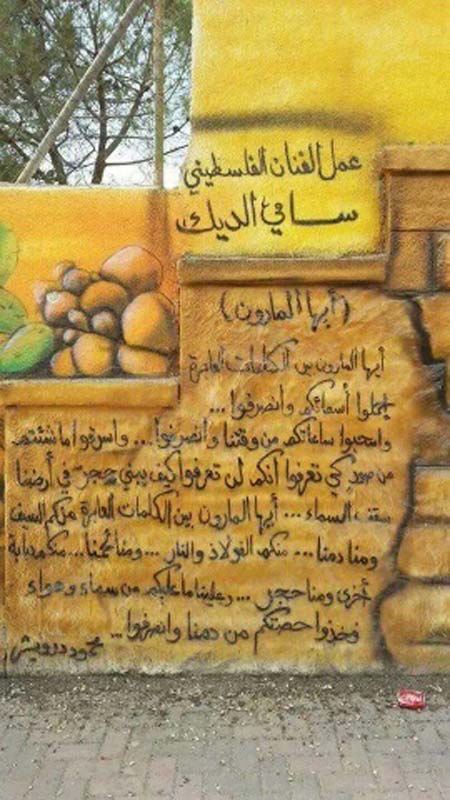 عمل الفنان الفلسطيني
سامي الديك
(أيها المارون)
أيها المارون بين الكلمات العابرة
إحملوا أسمائكم وانصرفوا ...
واسحبوا ساعاتكم من وقتنا وانصرفوا ... واسرقوا ما شئتم
من صور كي تعرفوا أنكم لن تعرفوا كيف يبني حجر في أرضنا
سقف السماء ... أيها المارون بين الكلمات العابرة منكم السيف
ومنا دمنا ... منكم الفولاذ والنار ... ومنا لحمنا ... منكم دبابة
أخرى ومنا حجر ... وعلينا ما عليكم من سماء وهواء
فخذوا حصتكم من دمنا وانصرفوا ...
محمود درويش